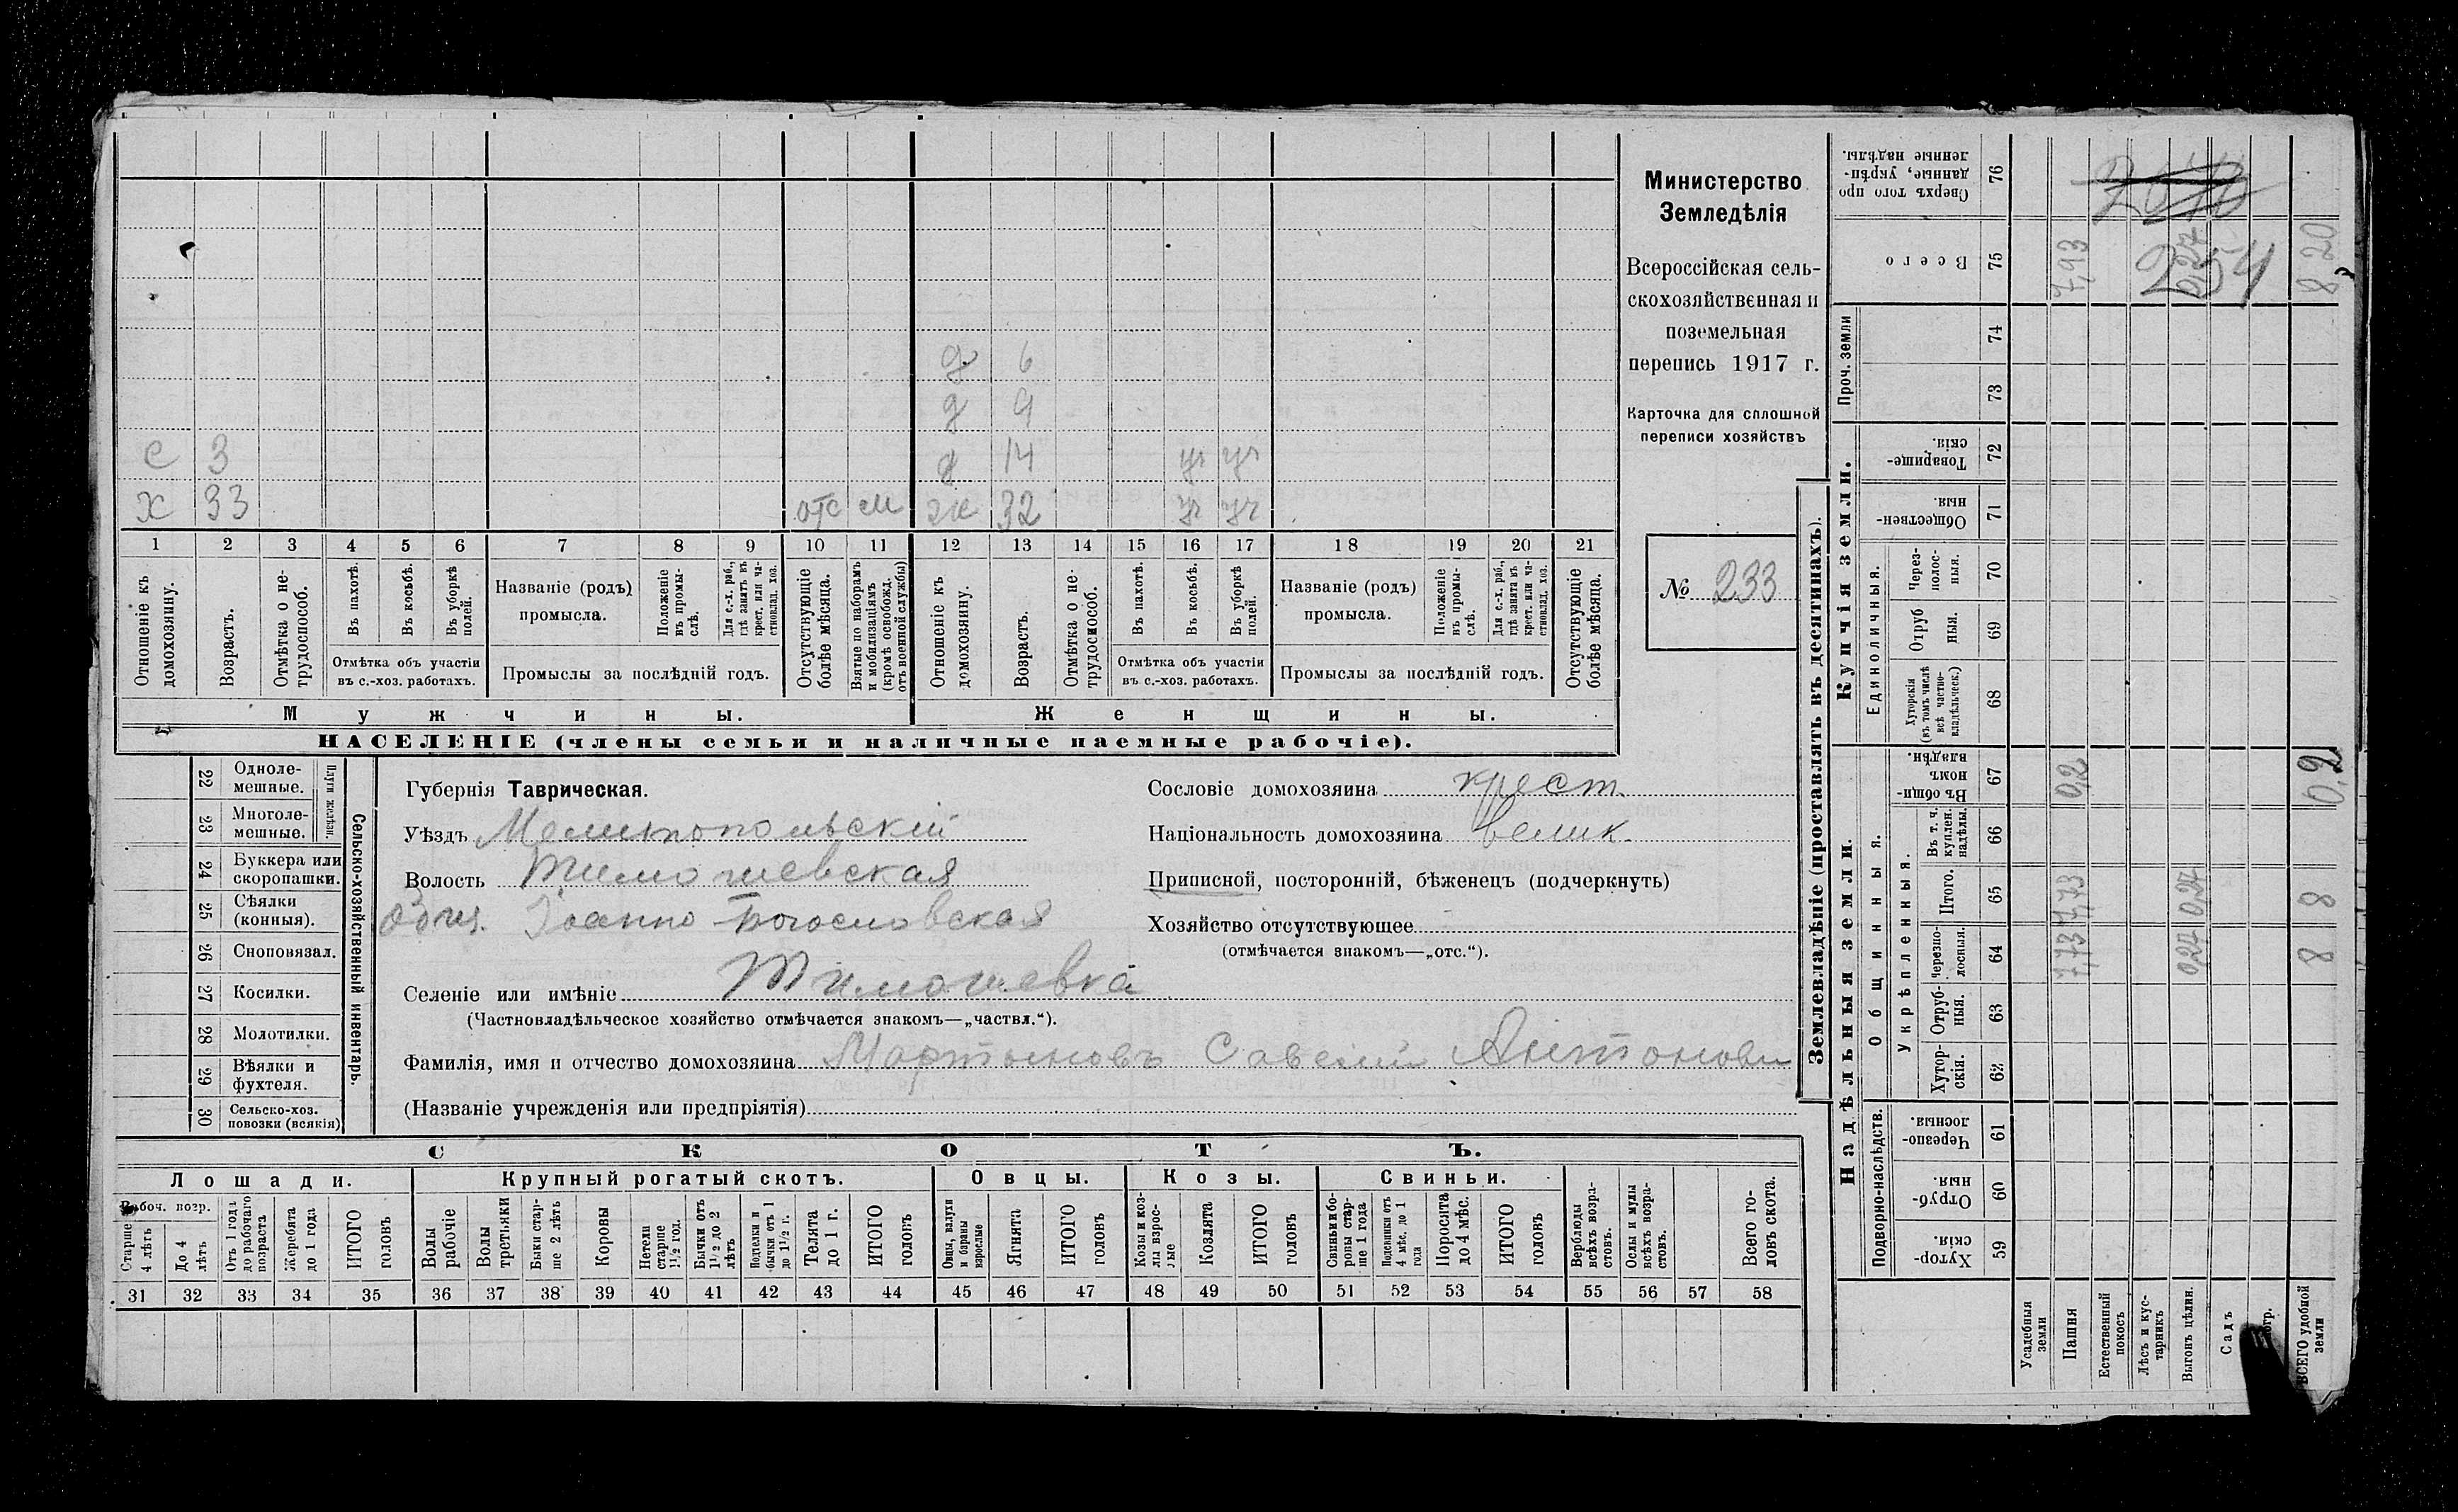 д 6
д 9
С 3 д 14 уч уч
Х 33 отс м ж 32 уч уч
1 2 3 4 5 6 7 8 9 10 11 12 13 14 15 16 17 18 19 20 21
Отношеніе къ домохозяину.
Возрастъ.
Отмѣтка о не-трудоспособ.
Въ пахотѣ.
Въ косьбѣ.
Въ уборкѣ полей.
Отмѣтка объ участіи въ с.-хоз. работахъ.
Названіе (родъ) промысла.
Положеніе въ промы-слѣ.
Для с.-х. раб., гдѣ занятъ въ крест. или ча-стновлад. хоз.
Промыслы за послѣдній годъ.
Отсутствующіе болѣе мѣсяца.
Взятые по наборамъ и мобилизаціямъ (кромѣ освобожд. отъ военной службы)
Отношеніе къ домохозяину.
Возрастъ.
Отмѣтка о не-трудоспособ.
Въ пахотѣ.
Въ косьбѣ.
Въ уборкѣ полей.
Отмѣтка объ участіи въ с.-хоз. работахъ.
Названіе (родъ) промысла.
Положеніе въ промы-слѣ.
Для с.-х. раб., гдѣ занята въ крест. или ча-стновлад. хоз.
Промыслы за послѣдній годъ.
Отсутствующіе болѣе мѣсяца.
Мужчины. Женщины.
НАСЕЛЕНІЕ (члены семьи и наличные наемные рабочіе).
Министерство
Земледѣлія
Всероссійская сель-
скохозяйственная и
поземельная
перепись 1917 г.
Карточка для сплошной
переписи хозяйствъ
№ 233
22 Одноле-мешные.
23 Многоле-мешные.
Плуги желѣзн.
24 Буккера или скоропашки.
25 Сѣялки (конныя).
26 Сноповязал.
27 Косилки.
28 Молотилки.
29 Вѣялки и фухтеля.
30 Сельско-хоз. повозки (всякія)
Сельско-хозяйственный инвентарь.
Губернія Таврическая.
Уѣздъ Мелитопольскій
Волость Тимошевская
Общ. Іоанно-Богословская
Селеніе или имѣніе Тимошевка
(Частновладѣльческое хозяйство отмѣчается знакомъ—„частвл.“).
Фамилія, имя и отчество домохозяина Мартыновъ Савелій Антонови
(Названіе учрежденія или предпріятія)
Сословіе домохозяина крест.
Національность домохозяина велик.
Приписной, посторонній, бѣженецъ (подчеркнуть)
Хозяйство отсутствующее
(отмѣчается знакомъ—„отс.“).
СКОТЪ.
Лошади. Крупный рогатый скотъ. Овцы. Козы. Свиньи.
Рабоч. возр.
Старше 4 лѣтъ
До 4 лѣтъ
Отъ 1 года до рабочаго возраста
Жеребята до 1 года
ИТОГО головъ
Волы рабочіе
Волы третьяки
Быки стар-ше 2 лѣтъ
Коровы
Нетели старше 1½ год.
Бычки отъ 1½ до 2 лѣтъ
Подтелки и бычки отъ 1 до 1½ г.
Телята до 1 г.
ИТОГО головъ
Овцы, валухи и бараны взрослые
Ягнята
ИТОГО головъ
Козы и коз-лы взрос-лые
Козлята
ИТОГО головъ
Свиньи и бо-ровы стар-ше 1 года
Подсвинки отъ 4 мѣс. до 1 года
Поросята до 4 мѣс.
ИТОГО головъ
Верблюды всѣхъ возра-стовъ.
Ослы и мулы всѣхъ возра-стовъ.
Всего го-ловъ скота.
31 32 33 34 35 36 37 38 39 40 41 42 43 44 45 46 47 48 49 50 51 52 53 54 55 56 57 58
Землевладѣніе (проставлять въ десятинахъ).
Надѣльныя земли. Купчія земли. Проч. земли
Подворно-наслѣдств. Общинныя. Единоличныя.
Укрѣпленныя.
Хутор-скія. 59
Отруб-ныя. 60
Черезпо-лосныя. 61
Хутор-скія. 62
Отруб-ныя. 63
черезпо-лосныя. 64
Итого. 65
Въ т. ч. куплен. надѣлы. 66
Въ общи-номъ владѣн. 67
Хуторскія (въ томъ числѣ всѣ частно-владѣльческ.) 68
Отруб ныя. 69
Через-полос-ныя. 70
Обществен-ныя. 71
Товарище-скія. 72
73
74
Всего 75
Сверхъ того про данные, укрѣп-ленные надѣлы. 76
Усадебныя земли
Пашня 7,73 7,73 0,2 7,93
Естественный покосъ
Лѣсъ и кус-тарникъ
Выгонъ цѣлин. 0,27 0,27 0,27
Садъ
ВСЕГО удобной земли 8 8 0,2 8 20
254